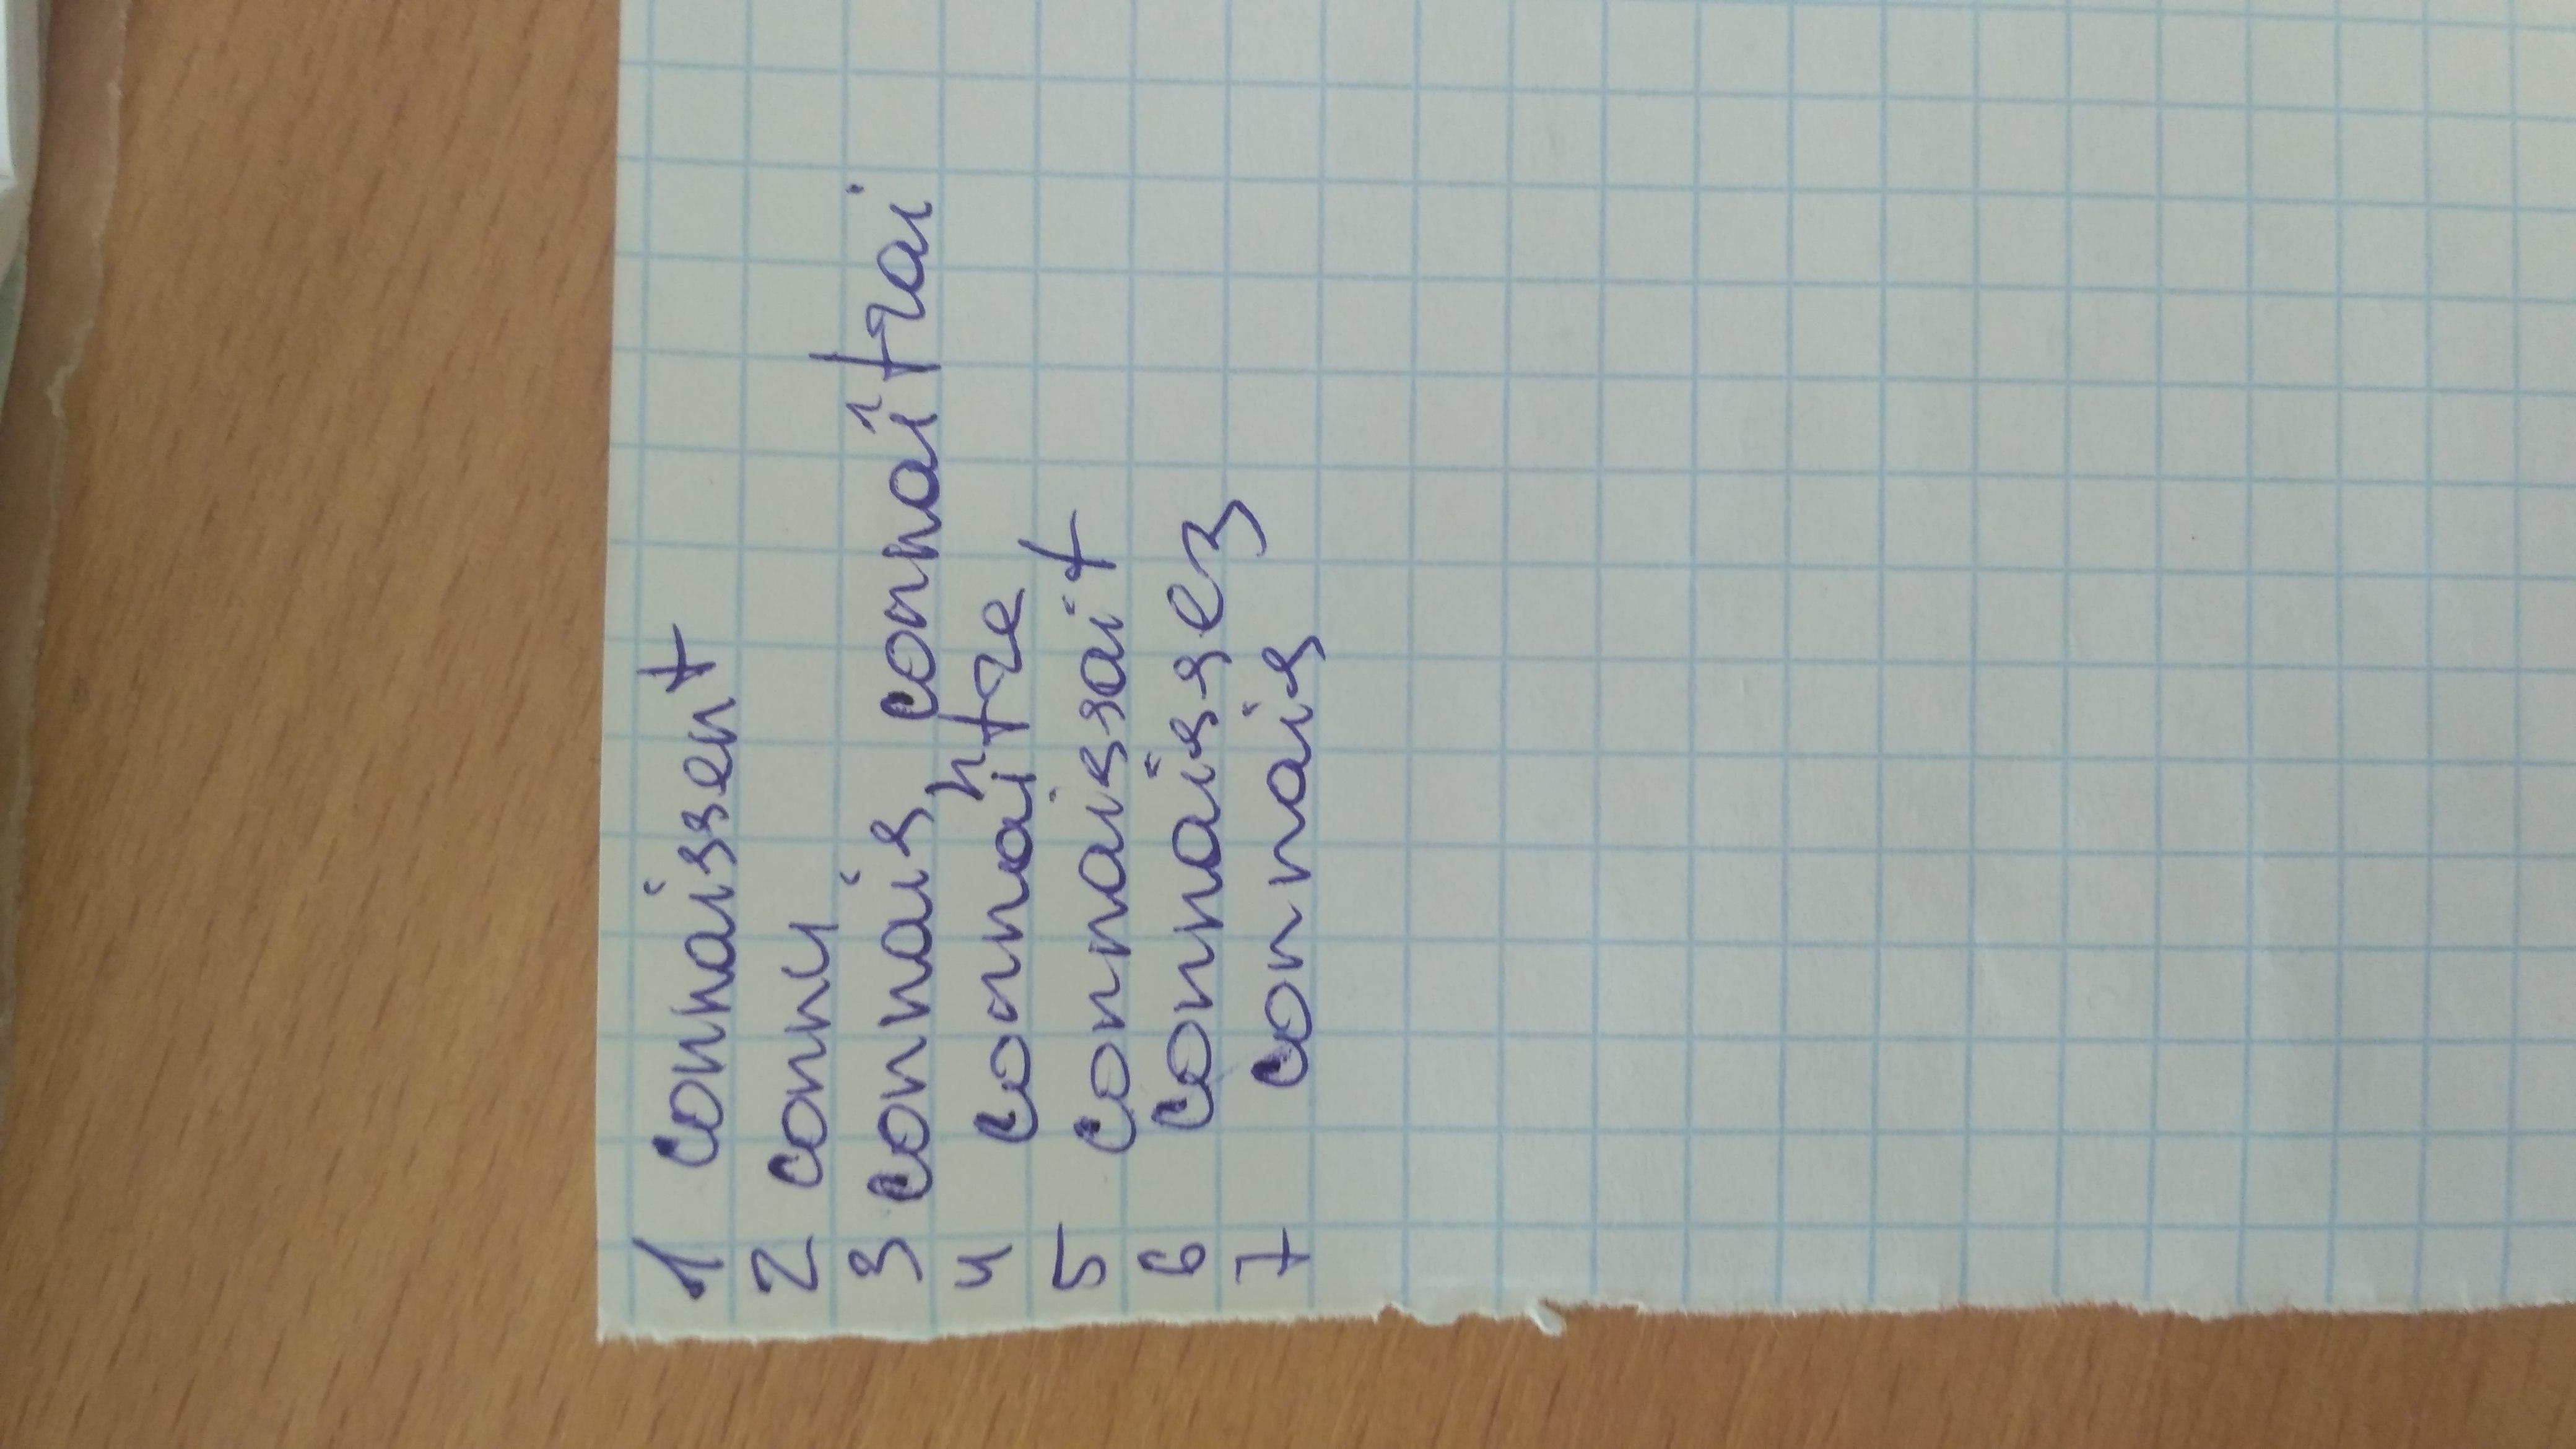 1 connaissent
2 connu
3 connais connaîtrai
4 connaître
5 connaissait
6 connaissez
7 connais